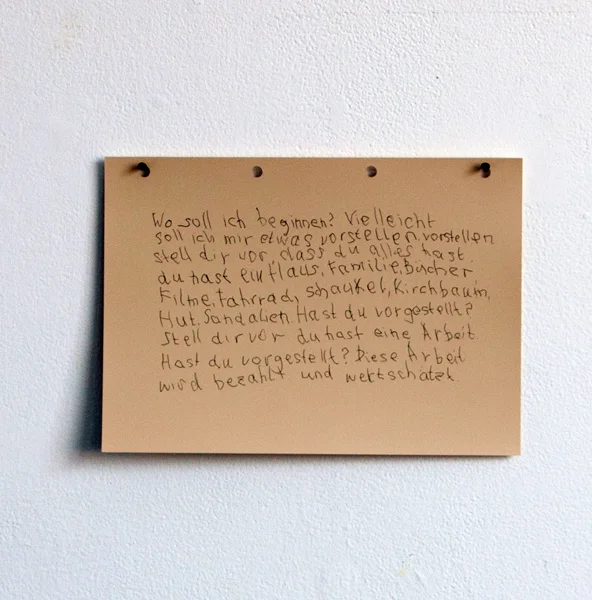 Wo soll ich beginnen? Vielleicht
soll ich mir etwas vorstellen. vorstellen
stell dir vor, dass du alles hast.
du hast ein Haus, Familie, Bücher
Filme, Fahrrad, Schaukel, Kirchbaum,
Hut, Sandalen. Hast du vorgestellt?
Stell dir vor du hast eine Arbeit
Hast du vorgestellt? Diese Arbeit
wird bezahlt und wertschätzt